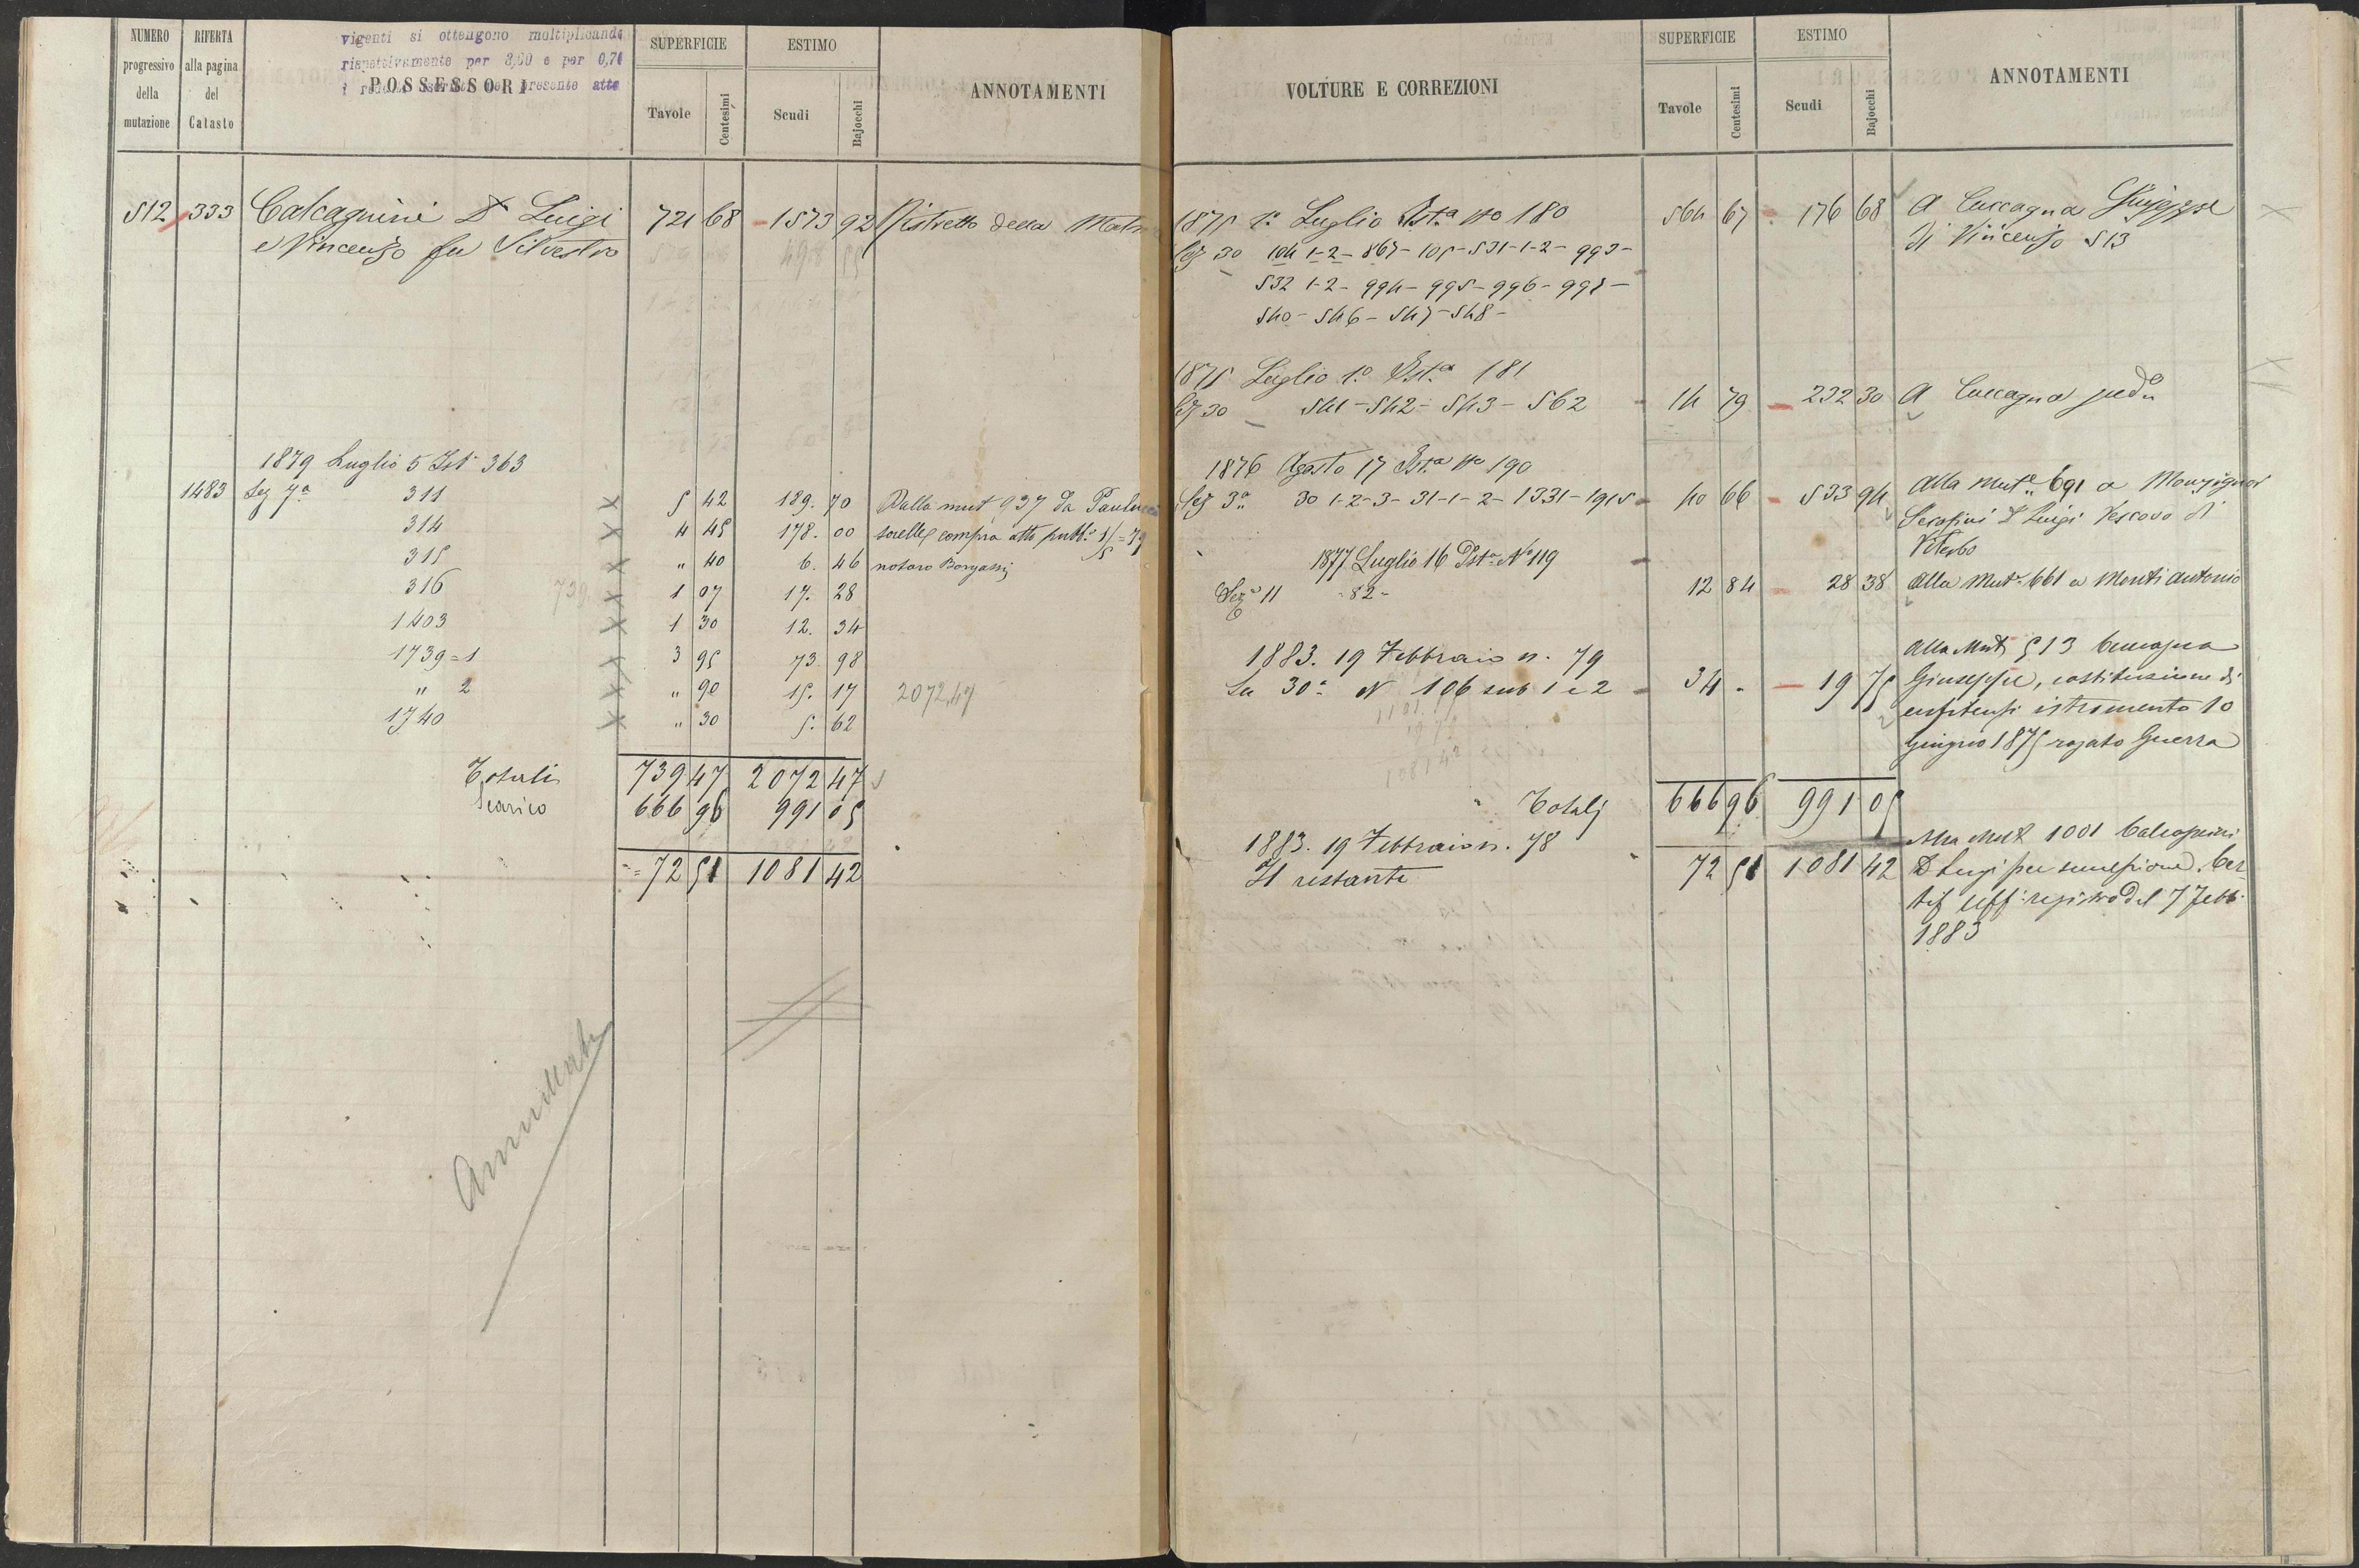 NUMERO progressivo della mutazione
RIFERTA alla pagina del Catasto
vigenti si ottengono moltiplicando
rispettivamente per 3,00 e per 0,71
POSSESSORI
presente atto
SUPERFICIE
Tavole
Centesimi
ESTIMO
Scudi
Bajocchi
ANNOTAMENTI
512 333 Calcagnini D Luigi 721 68 - 1573 92 Ristretto della
e Vincenzo fu Silvestro
1879 Luglio 5 Ist 363
1483 Sez 7a 311 5 42 189. 70 Dalla mut 937 da
314 4 45 178. 00 sorelle compra atto pubb: 1/5=79
315 " 40 6. 46 notaro
316 1 07 17. 28
1403 1 30 12. 34
1739=1 3 95 73 98
" 2 " 90 15. 17 2072,47
1740 " 30 5. 62
Totali 739 47 2072 47
Scarico 666 96 991 05
= 72 51 1081 42
VOLTURE E CORREZIONI
SUPERFICIE
Tavole
Centesimi
ESTIMO
Scudi
Bajocchi
ANNOTAMENTI
1875 1o Luglio Ista No 180 564 67 - 176 68 A Cuccagna Giuseppe
Sez 30 104 1-2- 867- 105- 531-1-2- 993- di Vincenzo 513
532 1-2- 994- 995- 996- 997-
540- 546- 547- 548-
1875 Luglio 1o Ista 181
Sez 30 541- 542- 543- 562 - 14 79 - 232 30 A Cuccagna
1876 Agosto 17 Ista No 190
Sez 3a 30 1-2-3- 31-1-2- 1331- 1915 - 40 66 - 533 94 Alla Muta 691 a Monsignor
Serafini D Luigi Vescovo di
Viterbo
1877 Luglio 16 Ista No 119
Seze 11 - 82 - 12 84 - 28 38 Alla Muta 661 a Monti Antonio
1883. 19 Febbraio n. 79
30a N 106 sub 1 e 2 - 34 - - 19 75
Alla Mut 513 Cuccagna
Giuseppe, costituzione di
enfiteusi istromento 10
Giugno 1875 rogato Guerra
Totali 666 96 991 05
1883. 19 Febbraio n. 78
Il restante 72 51 1081 42
Alla Mut 1001 Calcagnini
D Luigi per successione. Cer-
tif uff: registro del 7 Febb:
1883